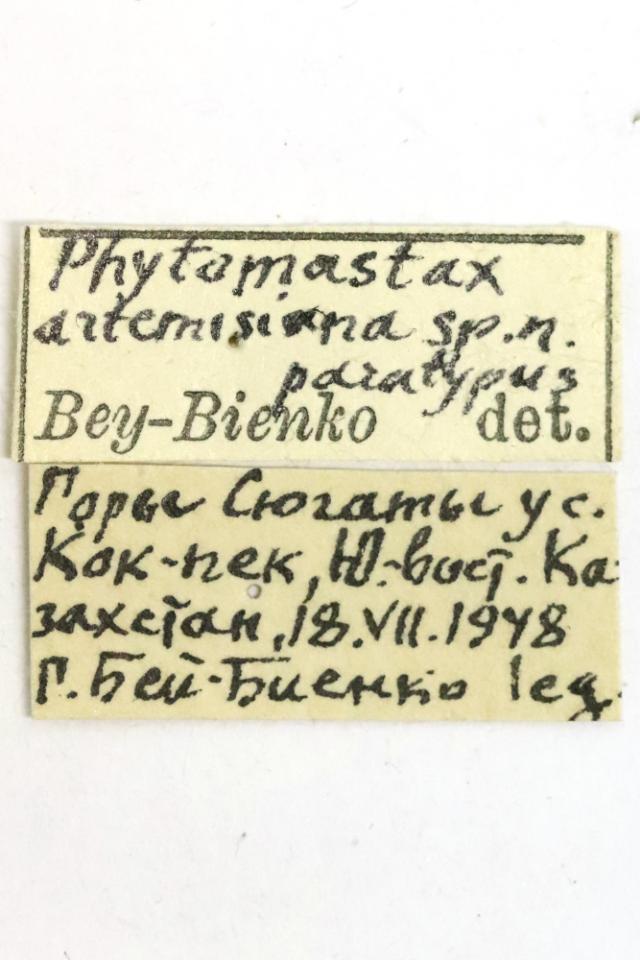 Phytomastax
artemisiana sp.n.
paratypus
Bey-Bienko det.
Горы Сюгаты у с.
Кок-пек, Ю.-вост. Ка-
захстан, 18.VII.1948
Г. Бей-Биенко leg.